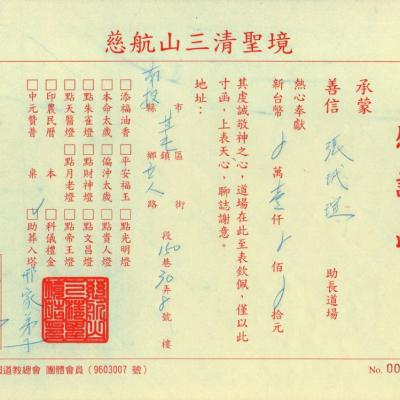 慈航山三清聖境
承蒙
善信 張 助長道場
熱心奉獻
新台幣 萬壹仟 佰 拾元
其虔誠敬神之心，道場在此至表欽佩，僅以此
寸函，上表天心，聊誌謝意。
地址：
南投 縣市 鄉鎮區 人 路街 段 150 巷 30 弄 8 號 樓
□添福油香 □平安福玉 □點光明燈
□本命太歲 □偏沖太歲 □點貴人燈
□點朱雀燈 □點財神燈 □點文昌燈
□點天醫燈 □點月老燈 □點帝王燈
□印農民曆 本 □科儀禮金
□中元贊普 桌 □助葬入塔
邢家弟子
道教總會 團體會員（9603007 號）
No. 00